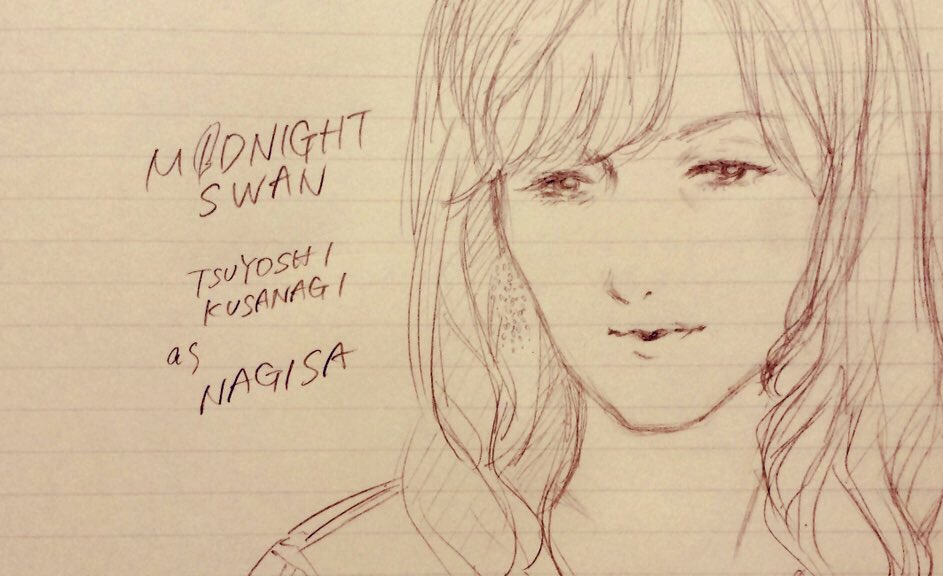 MIDNIGHT
SWAN
TSUYOSHI
KUSANAGI
as
NAGISA